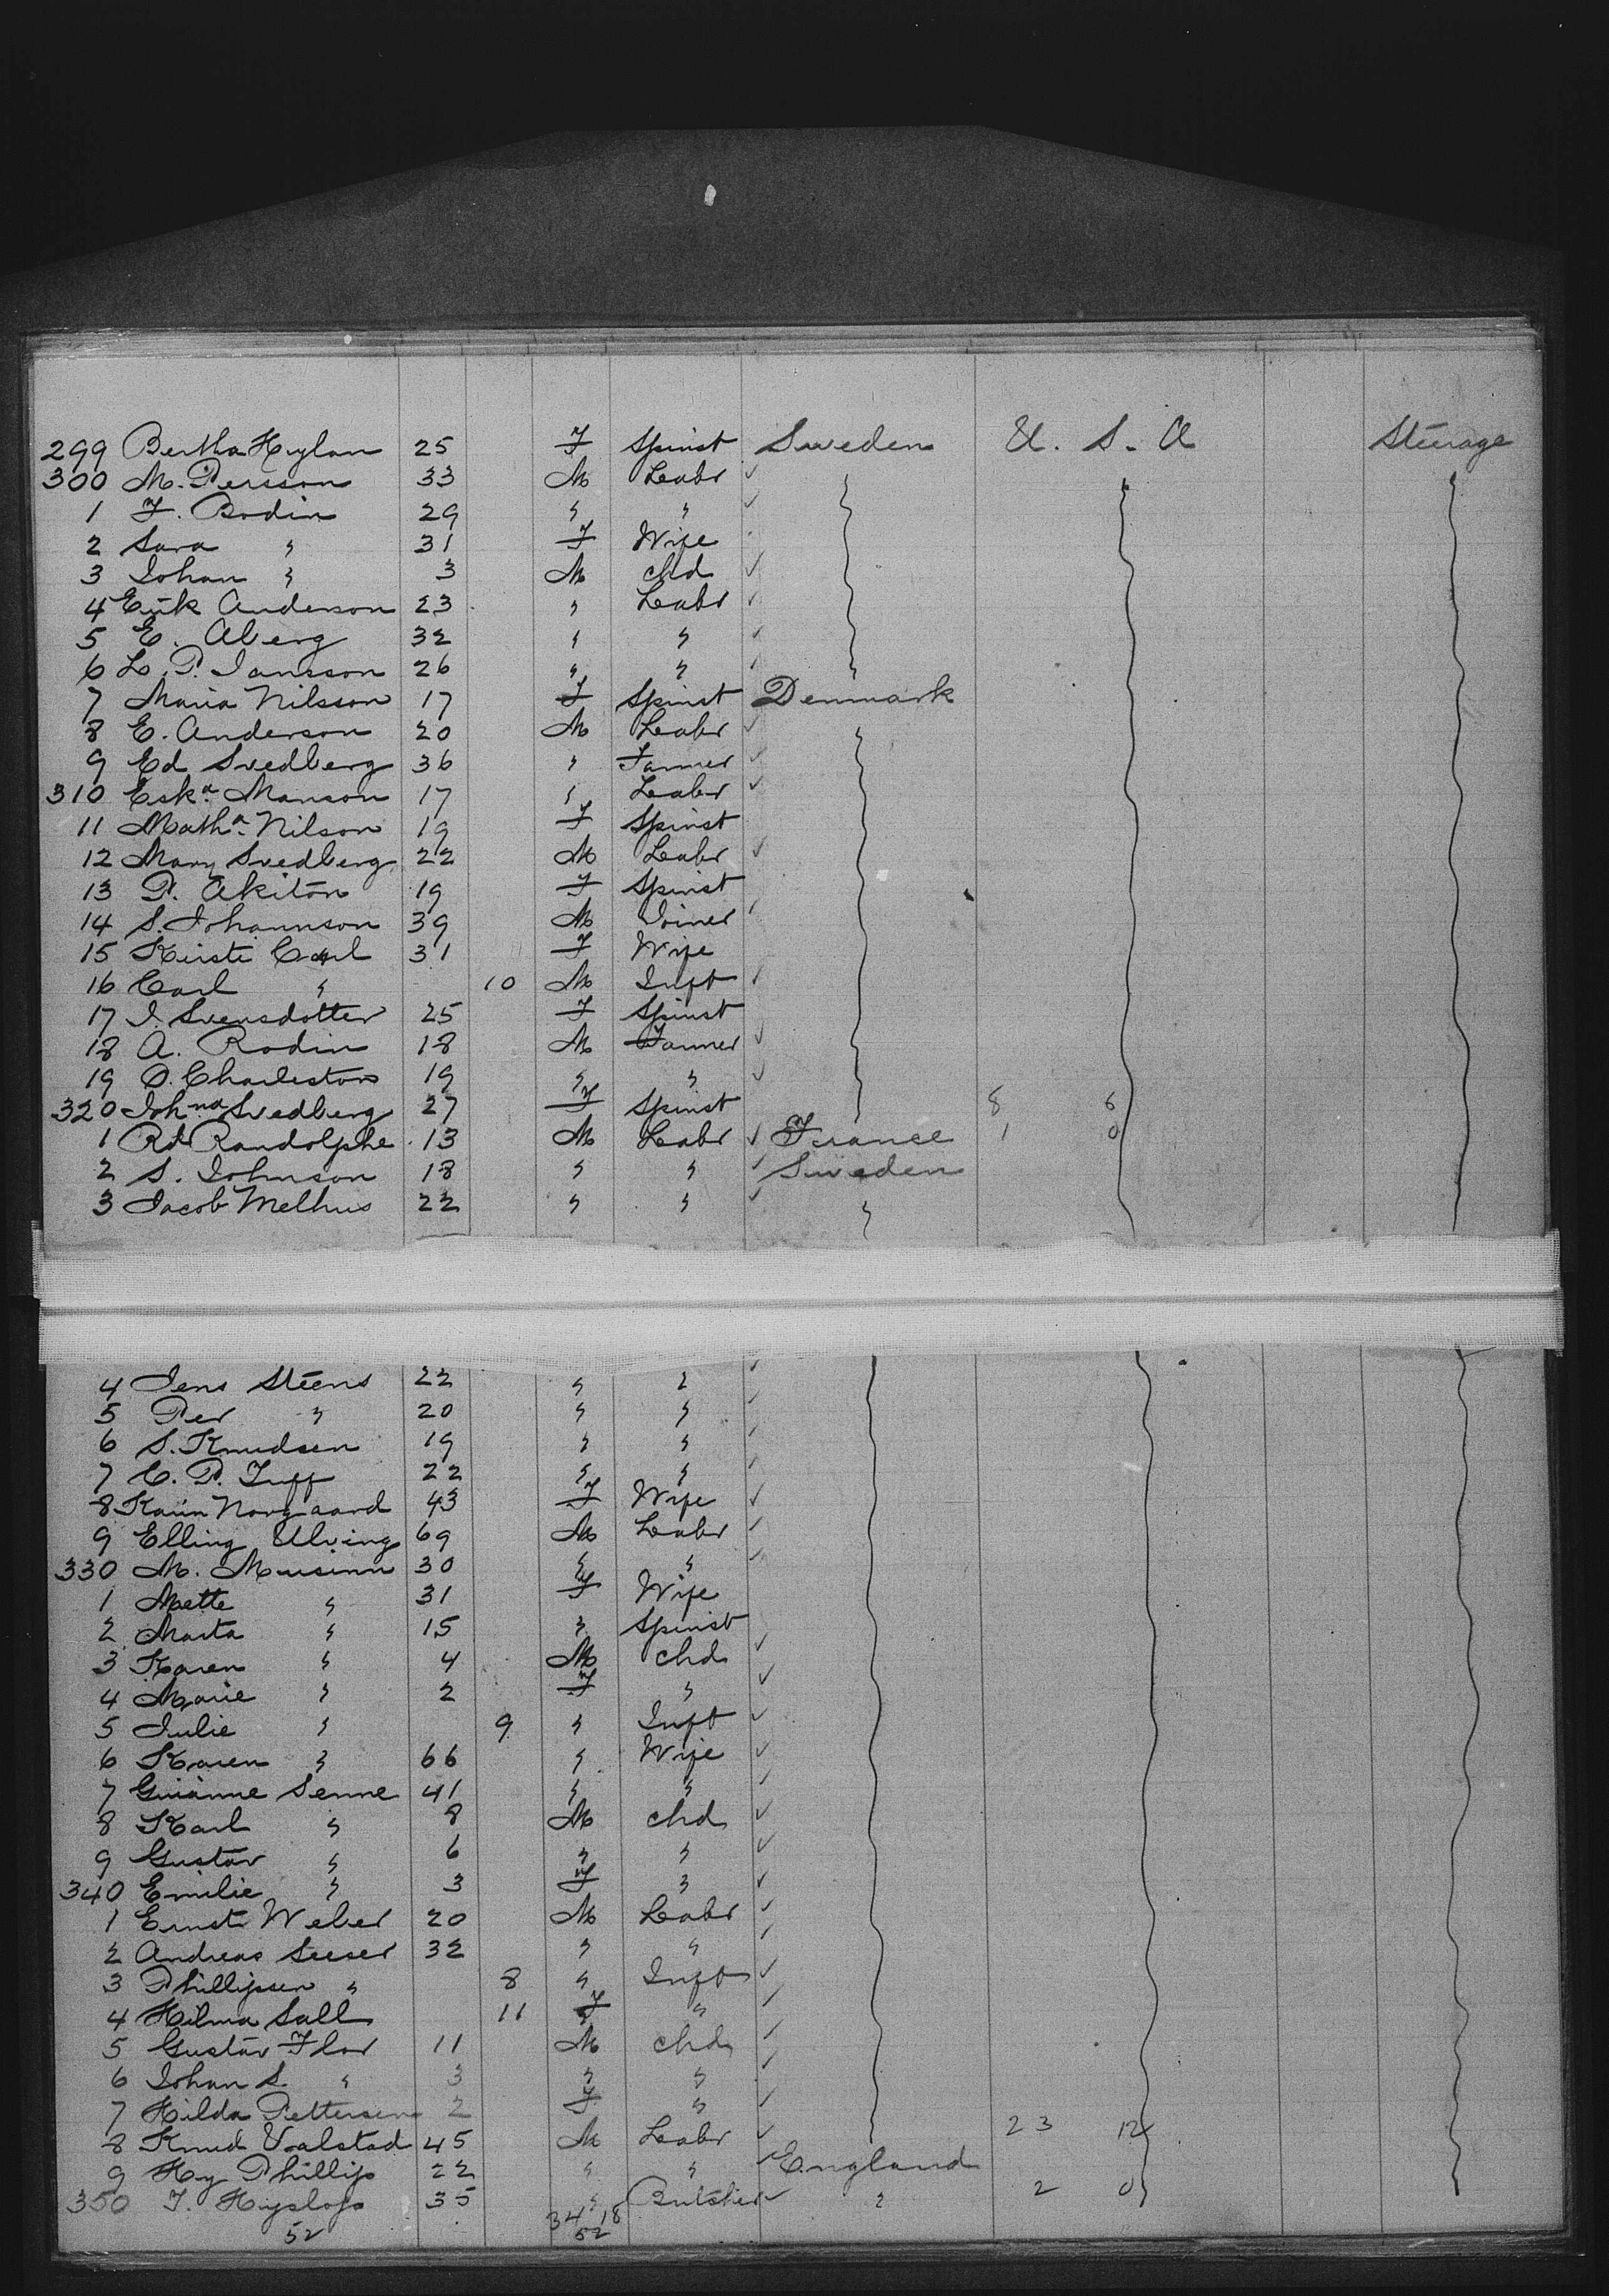 299 Bertha Hylan 25 F Spinst Sweden U. S. A Steerage
300 M. Persson 33 M Labr ✓
1 F. Bodin 29 " " ✓
2 Sara " 31 F Wife
3 Johan " 3 M chd ✓
4 Erik Anderson 23 " Labr ✓
5 E. Aberg 32 " " ✓
6 L. P. Jansson 26 " " ✓
7 Maria Nilsson 17 F Spinst Denmark
8 E. Anderson 20 M Labr ✓
9 Ed Svedberg 36 " Farmer ✓
310 Eska. Manson 17 " Labr ✓
11 Matha. Nilson 19 F Spinst
12 Mary Svedberg 22 M Labr ✓
13 P. Akiton 19 F Spinst
14 S. Johannson 39 M Joiner ✓
15 Kirsti Carl 31 F Wife
16 Carl " 10 M Inft ✓
17 I. Svensdotter 25 F Spinst
18 A. Rodin 18 M Farmer ✓
19 O. Charleston 19 " " ✓
320 Johna Svedberg 27 F Spinst 8 6
1 Rd Randolphe 13 M Labr ✓ France 1 0
2 S. Johnson 18 " " ✓ Sweden
3 Jacob Melhus 22 " " ✓ "
4 Jens Steens 22 " " ✓
5 Per " 20 " " ✓
6 S. Knudsen 19 " " ✓
7 C. P. Tuff 22 " " ✓
8 Karin Norgaard 43 F Wife ✓
9 Elling Ulving 69 M Labr ✓
330 M. Musinn 30 " " ✓
1 Mette " 31 F Wife
2 Marta " 15 " Spinst
3 Karen " 4 M chd ✓
4 Marie " 2 F " ✓
5 Julie " 9 " Inft ✓
6 Karen " 66 " Wife ✓
7 Senne 41 " " ✓
8 Karl " 8 M chd ✓
9 Gustav " 6 " " ✓
340 Emilie " 3 F " ✓
1 Ernst Weber 20 M Labr ✓
2 Andreas Seeser 32 " " ✓
3 Phillipsen " 8 " Inft ✓
4 Hilma Sall 11 F " ✓
5 Gustav Flor 11 M chd ✓
6 Johan S. " 3 " " ✓
7 Hilda Pettersen 2 F " ✓
8 Knud Valstad 45 M Labr ✓ 23 12
9 Hy Phillips 22 " " England
350 J. Hyslop 35 " Butcher " 2 0
52 34 18
52